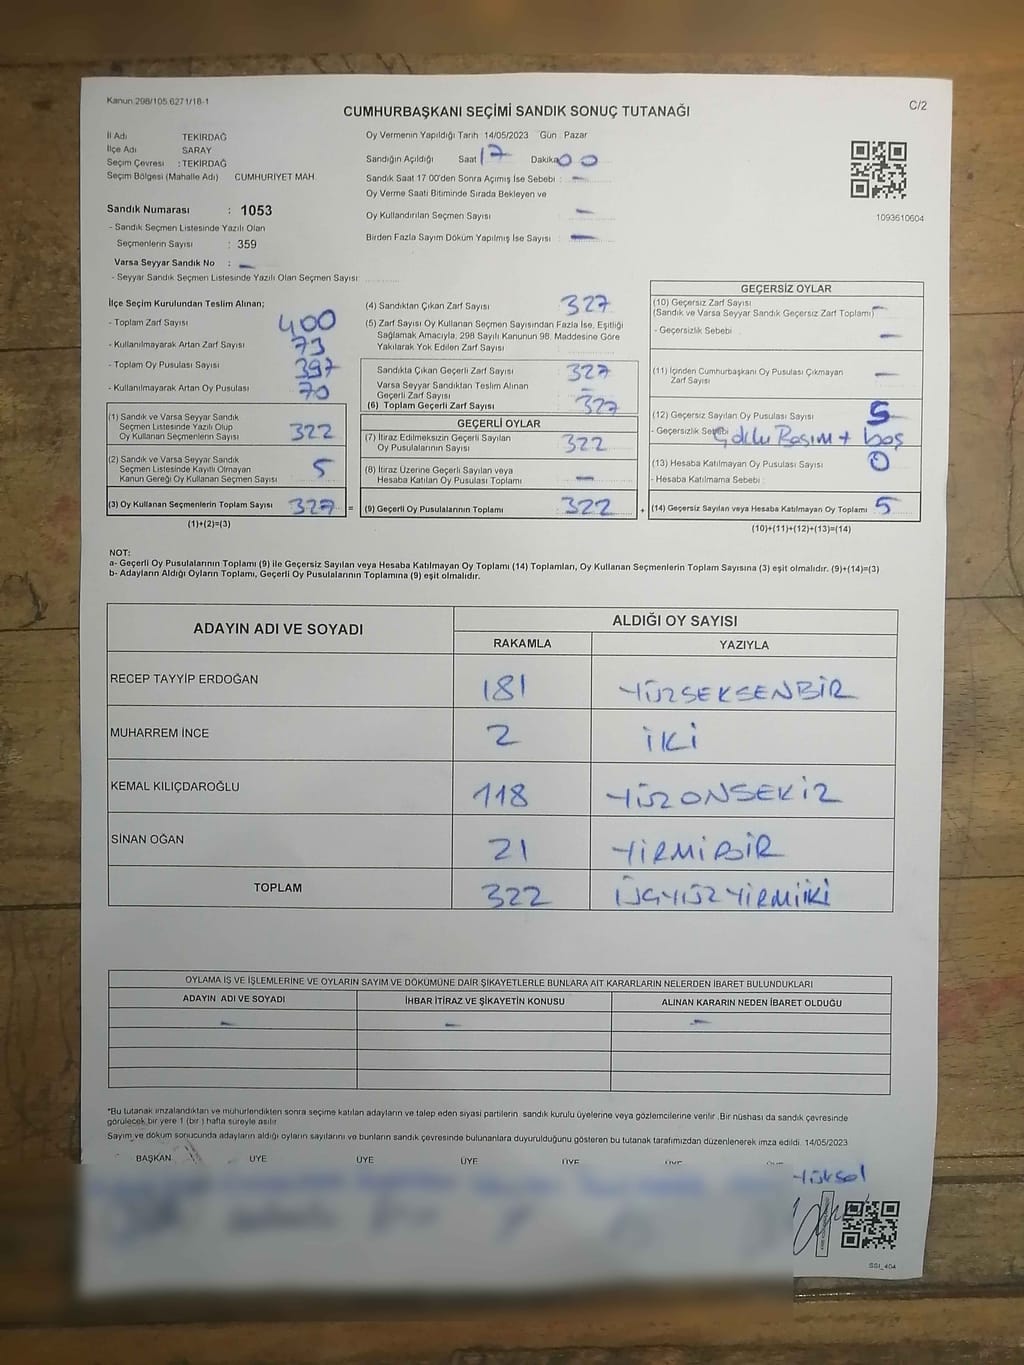 Kanun 298/105.6271/18-1
C/2
CUMHURBAŞKANI SEÇİMİ SANDIK SONUÇ TUTANAĞI
İl Adı TEKİRDAĞ
İlçe Adı SARAY
Seçim Çevresi : TEKİRDAĞ
Seçim Bölgesi (Mahalle Adı) CUMHURİYET MAH.
Sandık Numarası : 1053
- Sandık Seçmen Listesinde Yazılı Olan
Seçmenlerin Sayısı : 359
Varsa Seyyar Sandık No : -
- Seyyar Sandık Seçmen Listesinde Yazılı Olan Seçmen Sayısı:
Oy Vermenin Yapıldığı Tarih 14/05/2023 Gün Pazar
Sandığın Açıldığı Saat 17 Dakika 00
Sandık Saat 17 00'den Sonra Açımış İse Sebebi : -
Oy Verme Saati Bitiminde Sırada Bekleyen ve
Oy Kullandırılan Seçmen Sayısı -
Birden Fazla Sayım Döküm Yapılmış İse Sayısı : -
1093610604
İlçe Seçim Kurulundan Teslim Alınan;
- Toplam Zarf Sayısı 400
- Kullanılmayarak Artan Zarf Sayısı 73
- Toplam Oy Pusulası Sayısı 397
- Kullanılmayarak Artan Oy Pusulası 70
(1) Sandık ve Varsa Seyyar Sandık
Seçmen Listesinde Yazılı Olup
Oy Kullanan Seçmenlerin Sayısı 322
(2) Sandık ve Varsa Seyyar Sandık
Seçmen Listesinde Kayıtlı Olmayan
Kanun Gereği Oy Kullanan Seçmen Sayısı 5
(3) Oy Kullanan Seçmenlerin Toplam Sayısı 327 =
(1)+(2)=(3)
(4) Sandıktan Çıkan Zarf Sayısı 327
(5) Zarf Sayısı Oy Kullanan Seçmen Sayısından Fazla İse, Eşitliği
Sağlamak Amacıyla, 298 Sayılı Kanunun 98. Maddesine Göre
Yakılarak Yok Edilen Zarf Sayısı
Sandıkta Çıkan Geçerli Zarf Sayısı 327
Varsa Seyyar Sandıktan Teslim Alınan
Geçerli Zarf Sayısı -
(6) Toplam Geçerli Zarf Sayısı 327
GEÇERLİ OYLAR
(7) İtiraz Edilmeksizin Geçerli Sayılan
Oy Pusulalarının Sayısı 322
(8) İtiraz Üzerine Geçerli Sayılan veya
Hesaba Katılan Oy Pusulası Toplamı -
(9) Geçerli Oy Pusulalarının Toplamı 322 +
GEÇERSİZ OYLAR
(10) Geçersiz Zarf Sayısı
(Sandık ve Varsa Seyyar Sandık Geçersiz Zarf Toplamı) -
- Geçersizlik Sebebi -
(11) İçinden Cumhurbaşkanı Oy Pusulası Çıkmayan
Zarf Sayısı -
(12) Geçersiz Sayılan Oy Pusulası Sayısı 5
- Geçersizlik Sebebi Çoklu Basım + boş
(13) Hesaba Katılmayan Oy Pusulası Sayısı 0
- Hesaba Katılmama Sebebi :
(14) Geçersiz Sayılan veya Hesaba Katılmayan Oy Toplamı 5
(10)+(11)+(12)+(13)=(14)
NOT:
a- Geçerli Oy Pusulalarının Toplamı (9) ile Geçersiz Sayılan veya Hesaba Katılmayan Oy Toplamı (14) Toplamları, Oy Kullanan Seçmenlerin Toplam Sayısına (3) eşit olmalıdır. (9)+(14)=(3)
b- Adayların Aldığı Oyların Toplamı, Geçerli Oy Pusulalarının Toplamına (9) eşit olmalıdır.
ADAYIN ADI VE SOYADI
ALDIĞI OY SAYISI
RAKAMLA YAZIYLA
RECEP TAYYİP ERDOĞAN 181 YÜZSEKSENBİR
MUHARREM İNCE 2 İKİ
KEMAL KILIÇDAROĞLU 118 YÜZONSEKİZ
SİNAN OĞAN 21 YİRMİBİR
TOPLAM 322 ÜÇYÜZYİRMİİKİ
OYLAMA İŞ VE İŞLEMLERİNE VE OYLARIN SAYIM VE DÖKÜMÜNE DAİR ŞİKAYETLERLE BUNLARA AİT KARARLARIN NELERDEN İBARET BULUNDUKLARI
ADAYIN ADI VE SOYADI İHBAR İTİRAZ VE ŞİKAYETİN KONUSU ALINAN KARARIN NEDEN İBARET OLDUĞU
- - -
*Bu tutanak imzalandıktan ve mühürlendikten sonra seçime katılan adayların ve talep eden siyasi partilerin sandık kurulu üyelerine veya gözlemcilerine verilir .Bir nüshası da sandık çevresinde
görülecek bir yere 1 (bir ) hafta süreyle asılır
Sayım ve döküm sonucunda adayların aldığı oyların sayılarını ve bunların sandık çevresinde bulunanlara duyurulduğunu gösteren bu tutanak tarafımızdan düzenlenerek imza edildi. 14/05/2023
BAŞKAN ÜYE ÜYE ÜYE ÜYE ÜYE
Yüksel
SSI_404